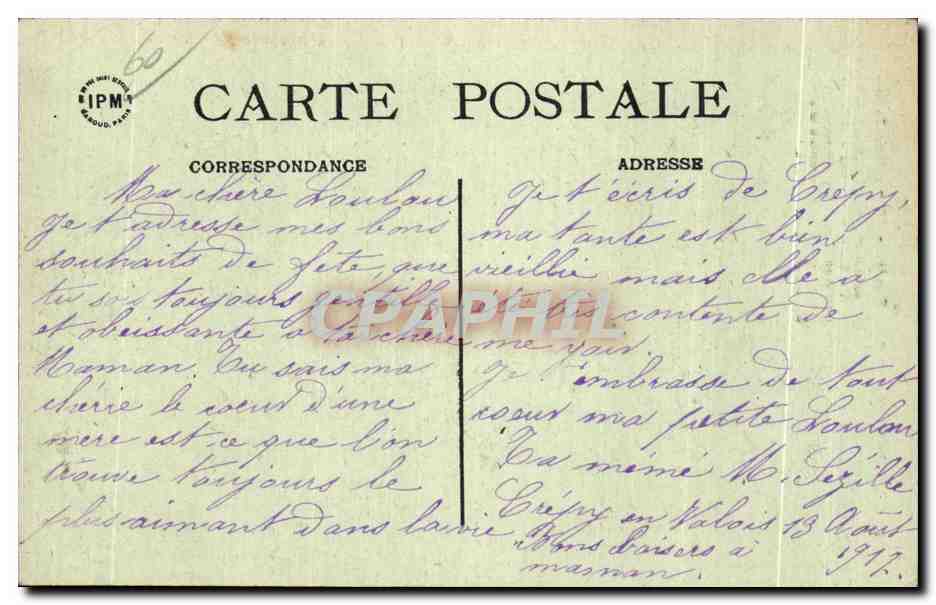 60
IPM
CARTE POSTALE
CORRESPONDANCE
Ma chère Loulou
Je t'adresse mes bons
souhaits de fête, que
tu sois toujours gentille
et obéissante à ta chère
Maman. Tu sais ma
chérie le coeur d'une
mère est ce que l'on
trouve toujours le
plus aimant dans la vie
ADRESSE
Je t'écris de Crépy,
ma tante est bien
vieillie mais elle a
été contente de
me voir.
Je t'embrasse de tout
coeur ma petite Loulou
Ta mémé M. Sézille
Crépy en Valois 13 Août
1917.
Bons baisers à
maman.
CPAPHIL